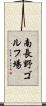 南長野ゴルフ場